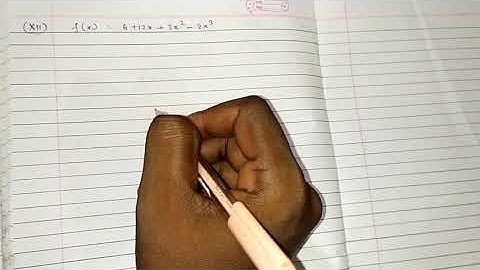 (XII) f(x) = 6+12x+3x²-2x³